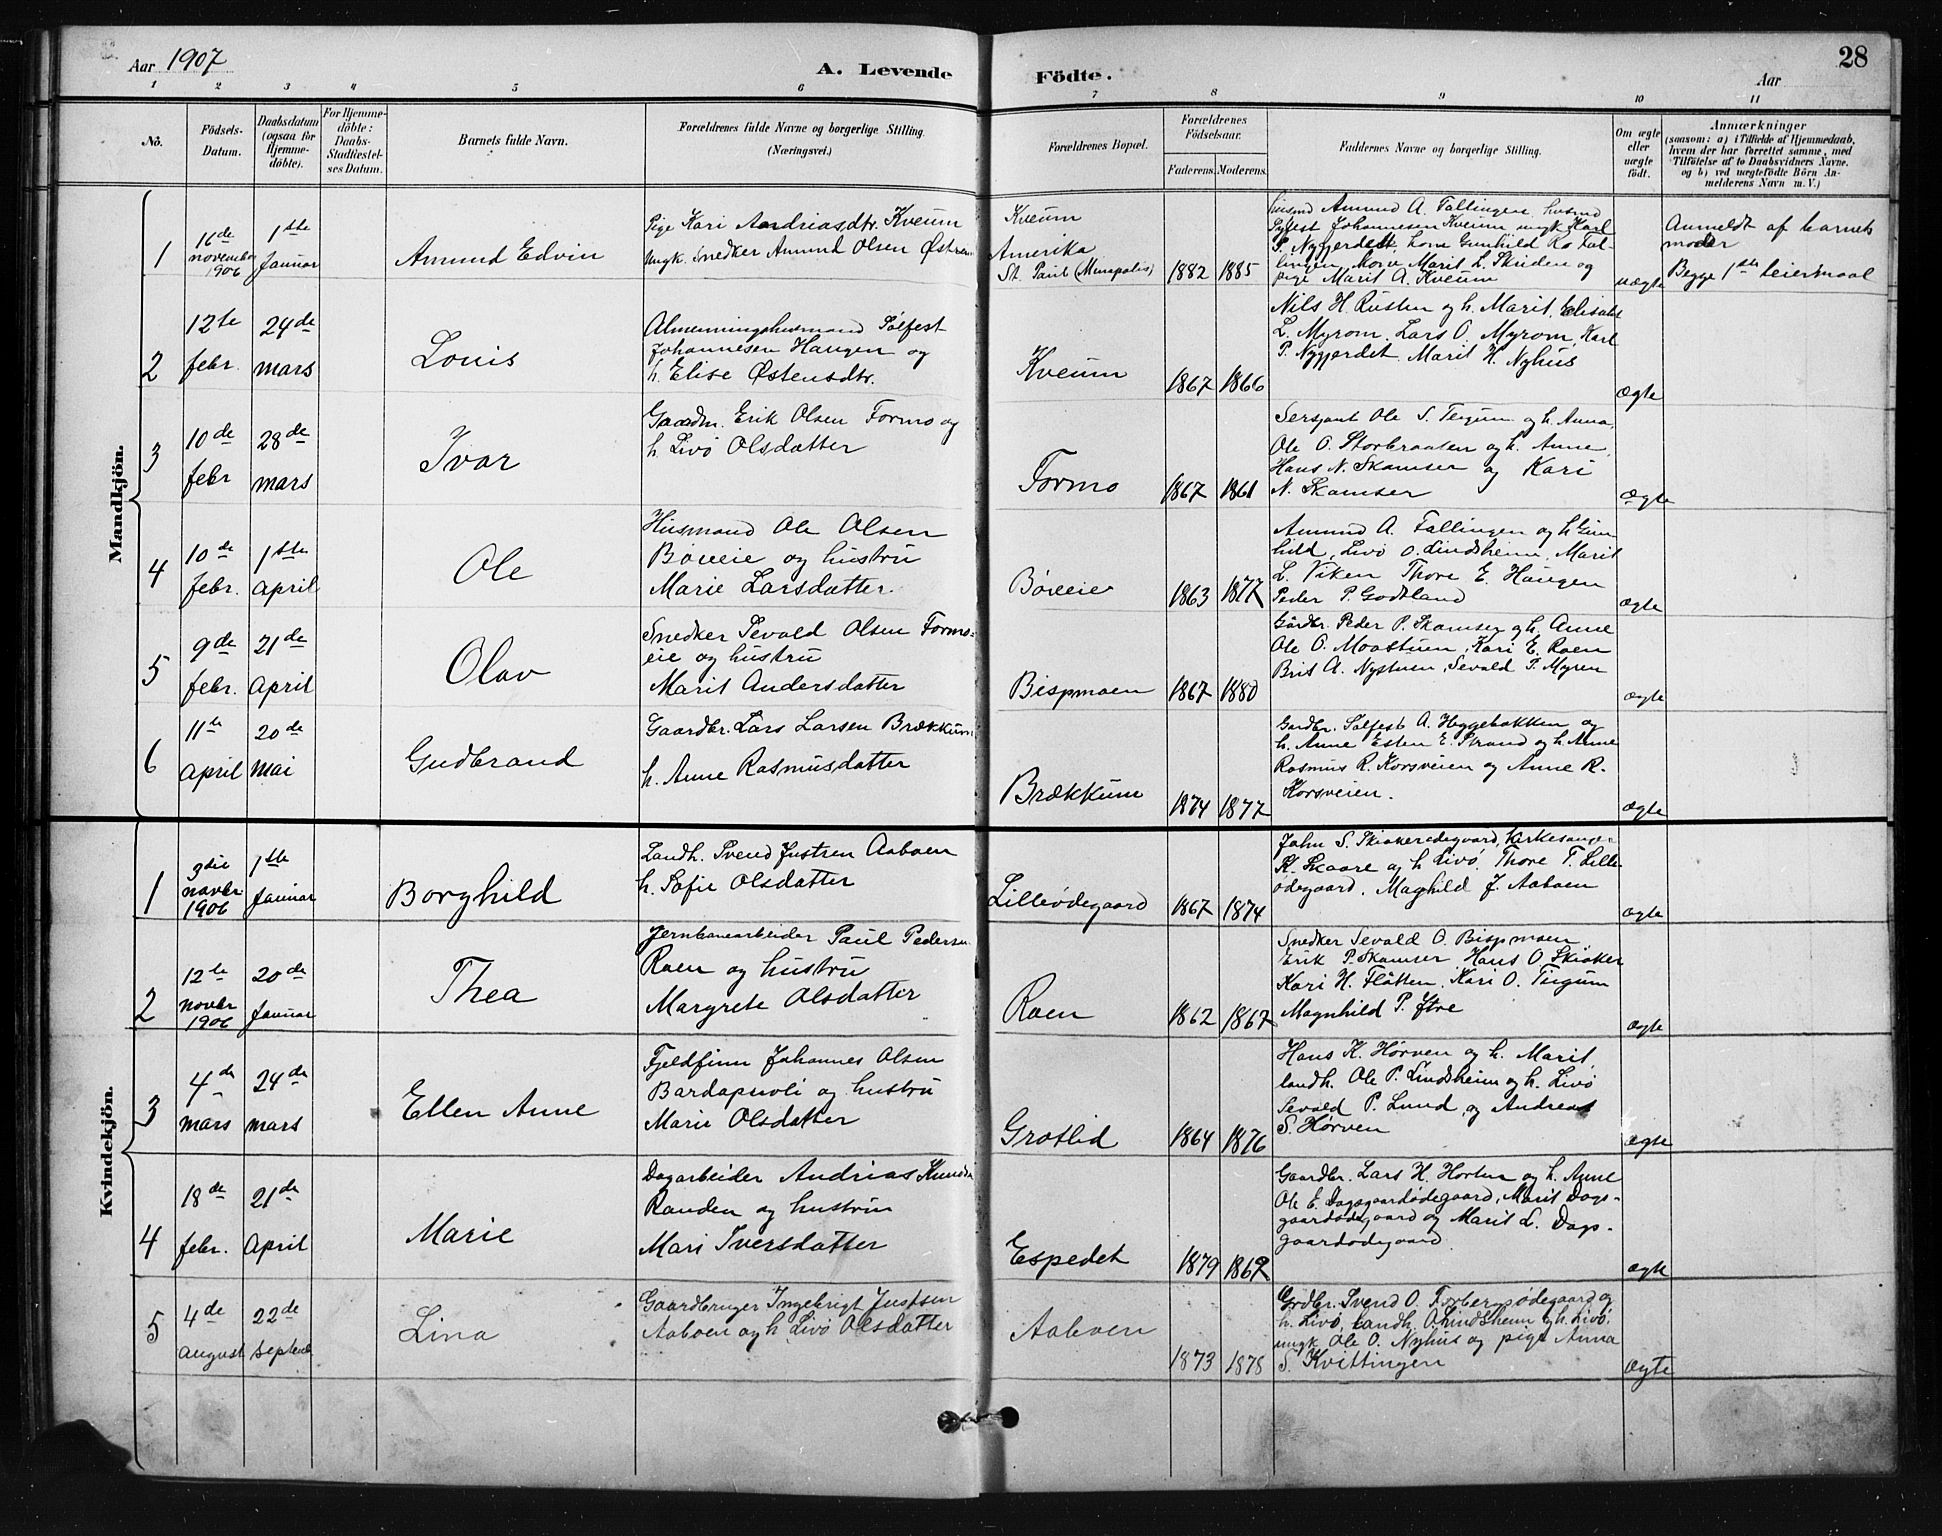 Aar 1907
A. Levende Födte.
Aar
28
1 2 3 4 5 6 7 8 9 10 11
No.
Födsels-Datum.
Daabsdatum (ogsaa for Hjemme-döbte).
For Hjemme-döbte: Daabs-Stadfæstel-ses Datum.
Barnets fulde Navn.
Forældrenes fulde Navne og borgerlige Stilling. (Næringsvei.)
Forældrenes Bopæl.
Forældrenes Födselsaar.
Faderens. Moderens.
Faddernes Navne og borgerlige Stilling.
Om ægte eller uægte födt.
Anmærkninger
(saasom: a) i Tilfælde af Hjemmedaab,
hvem der har forrettet samme, med
Tilföielse af to Daabsvidners Navne.
og b) ved uægtefödte Börn An-
melderens Navn m. V.)
Mandkjön.
1
16de november 1906
1ste Januar
Amund Edvin
Pige Kari Andriasdtr. Kveum
ungk. Snedker Amund Olsen
Kveum
Amerika
St. Paul (Minapolis)
1882 1885
husmd Amund A. Fallingen, husmd
Sylfest Johannesen Kveum ungk Karl
P. Nygjerdet, kone Gunhild Ro Fal-
lingen, kone Marit L. Skriden og
pige Marit A. Kveum
uægte
Anmeldt af barnets
moder
Begge 1ste leiermaal
2
12te febr.
24de mars
Louis
Almenningshusmand Sølfest
Johannesen Haugen og
h. Elise Østensdtr.
Kveum
1867 1866
Nils H. Rusten og h. Marit, Elisabet
L. Myrom, Lars O. Myrom, Karl
P. Nygjerdet, Marit H. Nyhus
ægte
3
10de febr
28de mars
Ivar
Gaardm. Erik Olsen Formo og
h. Livø Olsdatter
Formo
1867 1861
Sersjant Ole S. Teigum og h. Anna,
Ole O. Storbraaten og h. Anne,
Hans N. Skamser og Kari
N. Skamser
ægte
4
10de febr.
1ste April
Ole
Husmand Ole Olsen
Bøveie og hustru
Marie Larsdatter.
Bøveie
1863 1877
Amund A. Fallingen og h Gun-
hild, Livø O. Lindsheim, Marit
L. Viken Thore E. Haugen
Peder P. Godtland
ægte
5
9de febr.
21de April
Olav
Snedker Sevald Olsen Formo-
eie og hustru
Marit Andersdatter
Bispmoen
1867 1880
Gårdbr. Peder P. Skamser og h. Anne
Ole O. Moastuen, Kari E. Roen
Brit A. Nystuen, Sevald P. Myren
ægte
6
11te April
20de Mai
Gudbrand
Gaardbr. Lars Larsen Brækkum
h. Anne Rasmusdatter
Brækkum
1874 1877
Gardbr. Sølfest A. Heggebakken og
h. Anne Esten E. Strand og h. Anne
Rasmus R. Korsveien og Anne R.
Korsveien.
ægte
Kvindekjön.
1
3die novbr 1906
1ste Januar
Borghild
Landh. Svend Justsen Aaboen
h. Sofie Olsdatter
Lilleødegaard
1867 1874
John S. Skiakerødegaard, kirkesanger
K. Skaare og h Livø, Thore T. Lille-
ødegaard. Maghild J. Aaboen
ægte
2
12te novbr 1906
20de Januar
Thea
Jernbanearbeider Paul Pedersen
Roen og hustru
Margrete Olsdatter
Roen
1862 1867
Snedker Sevald O. Bispmoen
Erik P. Skamser Hans O Skiaker
Kari H. Flåtten. Kari O. Teigum
Magnhild P. Ytre
ægte
3
4de mars
24de mars
Ellen Anne
Fjeldfinn Johannes Olsen
Bardapuoli og hustru
Marie Olsdatter
Grotlid
1864 1876
Hans K. Hørven og h. Marit,
landh. Ole P. Lindsheim og h. Livø
Sevald P. Lund, og Andreas
S. Hørven
ægte
4
18de febr.
21de April
Marie
Dagarbeider Andrias Knudsen
Randen og hustru
Mari Iversdatter
Espedet
1879 1869
Gaardbr. Lars H. Horten og h. Anne
Ole E. Dagsgaardødegaard, Marit Dags-
gaardødegaard og Marit L. Dags-
gaardødegaard.
ægte
5
4de august
22de Septemb
Lina
Gaardbruger Ingebrigt Justsen
Aaboen og h. Livø Olsdatter
Aaboen
1873 1878
Grdbr. Svend O. Forbergsødegaard og
h. Livø, Landh. O. Lindsheim og h. Livø,
ungk Ole O. Nyhus og pige Anna
S. Kvittingen
ægte